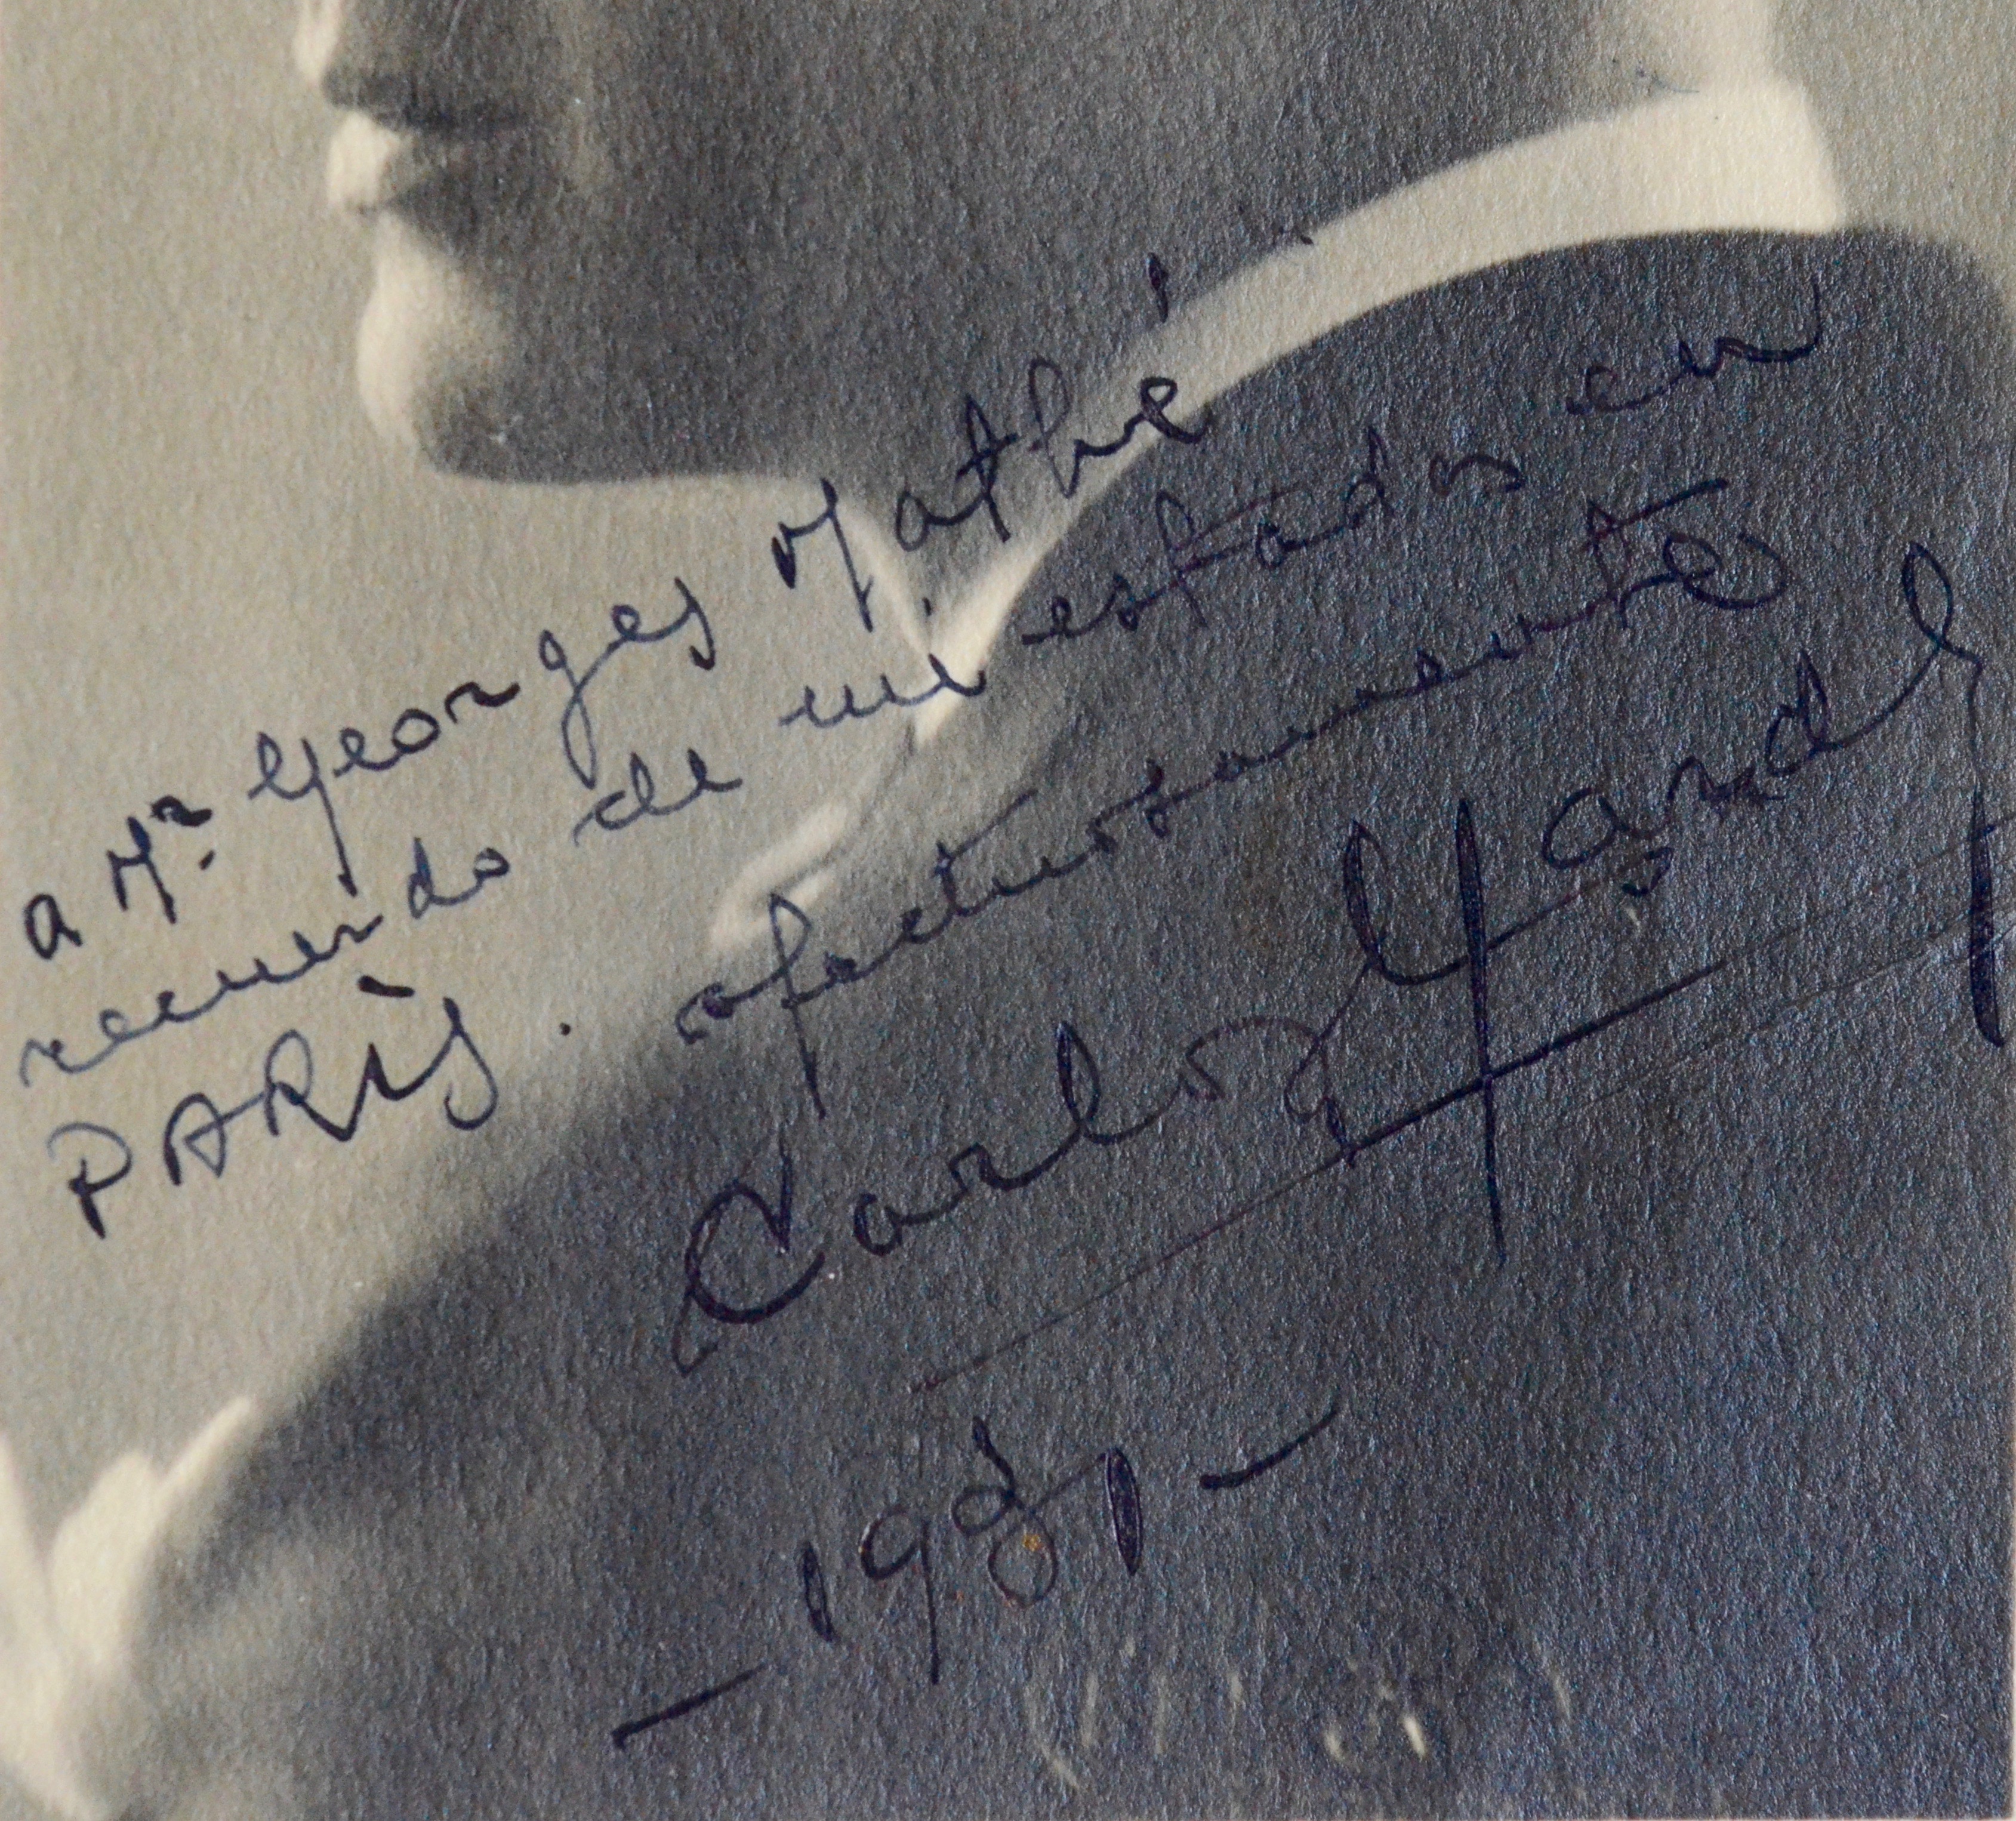 a Mr. Georges Mathé
recuerdo de mi estadas en
PARÌS. afectuosamente
Carlos Gardel
-1931-